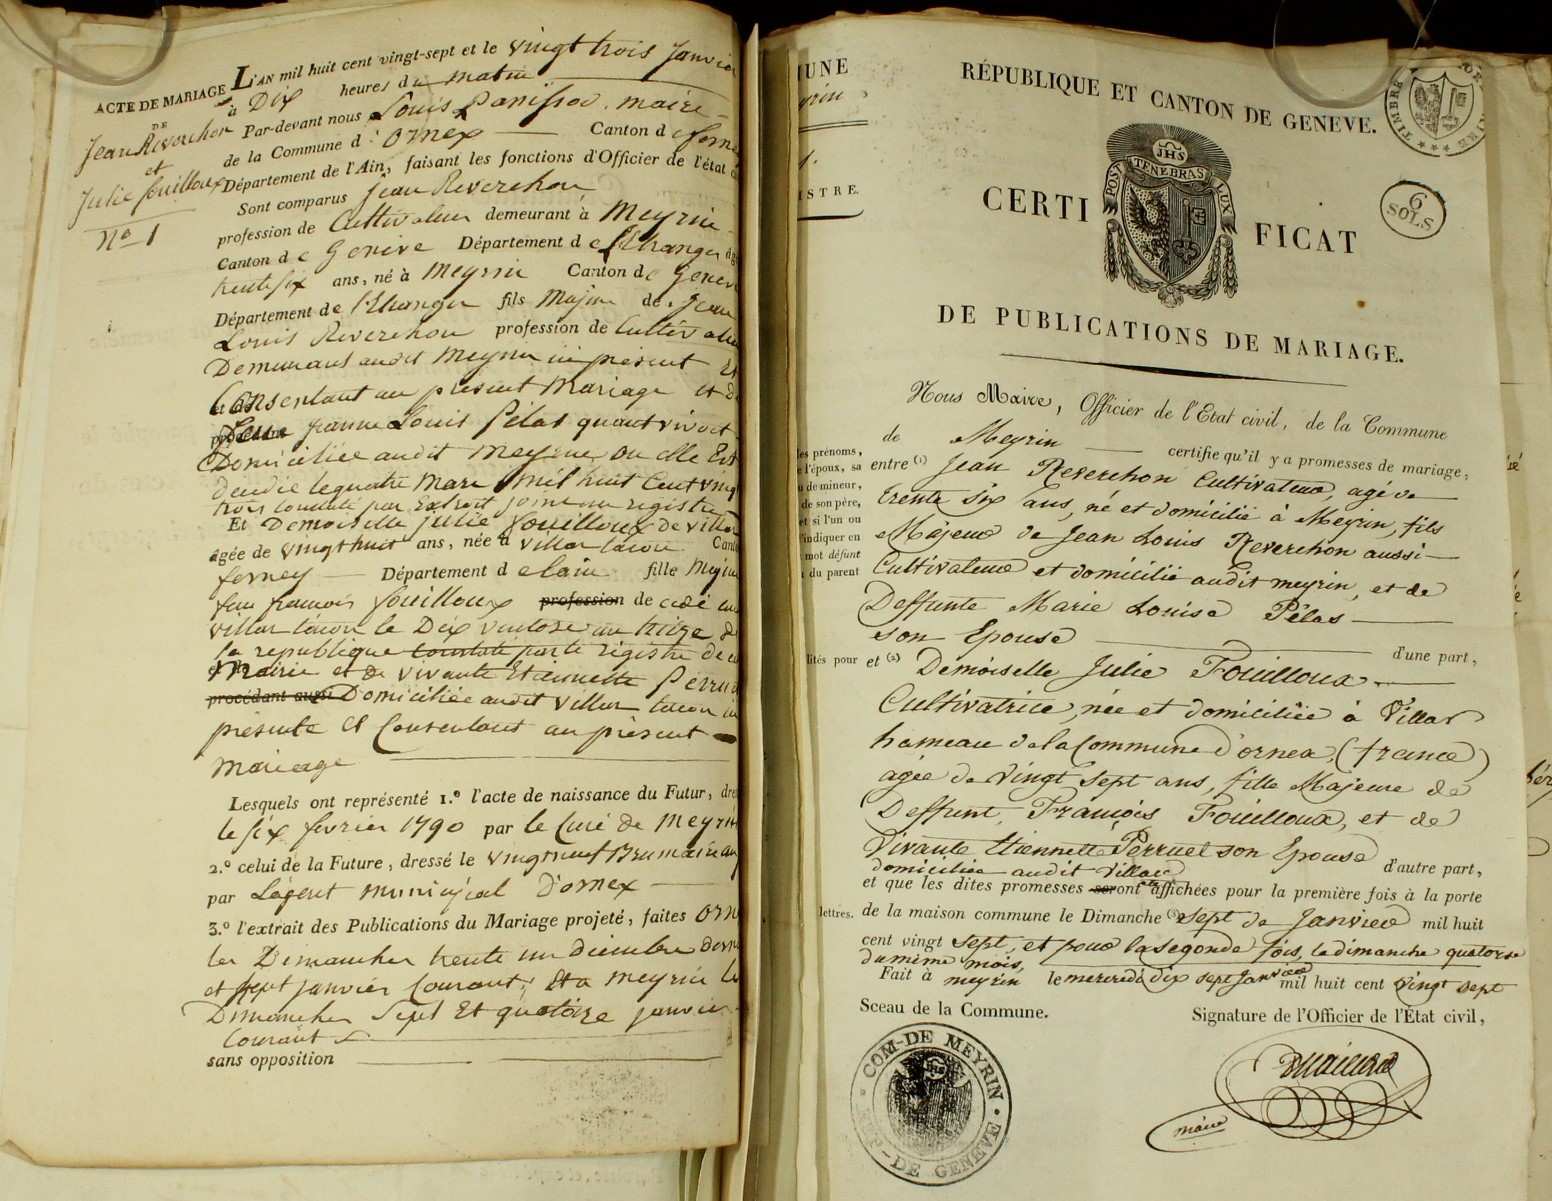 ACTE DE MARIAGE
DE
Jean Reverchon
et
Julie fouilloux
No 1
L'AN mil huit cent vingt-sept et le vingt trois Janvier
à Dix heures du matin
Par-devant nous Louis Panissod, maire
de la Commune d'Ornex Canton de ferney
Département de l'Ain, faisant les fonctions d'Officier de l'état
Sont comparus Jean Reverchon
profession de Cultivateur demeurant à Meyrin
Canton de Geneve Département de l'Etranger
trente six ans, né à Meyrin Canton de Geneve
Département de l'Etranger fils Majeur de Jean
Louis Reverchon profession de Cultivateur
Demeurant audit Meyrin ici présent Et
Consentant au present Mariage et de
feue jeanne Louis Pélas quant vivoit
Domiciliée audit Meyrin ou elle Est
décédée le quatre Mars mil huit Cent vingt
trois constaté par Extrait joint au registre
Et Demoiselle julie fouilloux de villar
âgée de vingt huit ans, née à villar tacon Canton
ferney Département de lain fille Majeure
feu francois fouilloux profession de cédé
villar tacon le Dix ventose an treize de
la republique constaté par le registre de
Mairie et de vivante Etiennette Perrud
procédant aussi Domiciliée audit villar tacon
présente Et Consentant au présent
mariage
Lesquels ont représenté 1.º l'acte de naissance du Futur,
le six fevrier 1790 par le Curé de Meyrin
2.º celui de la Future, dressé le vingt neuf Brumaire an
par L'agent municipal D'ornex
3.º l'extrait des Publications du Mariage projeté, faites
les Dimanches trente un décembre
et sept janvier Courant, Et a meyrin les
Dimanches Sept Et quatorze janvier
Courant
sans opposition
RÉPUBLIQUE ET CANTON DE GENEVE.
TIMBRE
6
SOLS
POST TENEBRAS LUX
JHS
CERTIFICAT
DE PUBLICATIONS DE MARIAGE.
Nous Maire, Officier de l'Etat civil, de la Commune
de Meyrin certifie qu'il y a promesses de mariage,
entre (1) Jean Reverchon Cultivateur, agé de
trente six ans, né et domicilié à Meyrin, fils
Majeur de Jean Louis Reverchon aussi
Cultivateur et domicilié audit meyrin, et de
Deffunte Marie Louise Pélas
son Epouse d'une part,
et (2) Demoiselle Julie Fouilloux
Cultivatrice, née et domiciliée à Villar
hameau de la Commune d'ornex, (france)
agée de Vingt sept ans, fille Majeure de
Deffunt, François Fouilloux, et de
Vivante Etiennette Perruel son Epouse
domiciliée audit Villar d'autre part,
et que les dites promesses seront affichées pour la première fois à la porte
de la maison commune le Dimanche (3) sept de Janvier mil huit
cent vingt sept, et pour la segonde fois, le dimanche quatorze
du même mois,
Fait à meyrin le mercredi dix sept Janvier mil huit cent vingt sept
Sceau de la Commune.
Signature de l'Officier de l'État civil,
COM-DE MEYRIN
REP-DE GENEVE
maire
les prénoms,
de l'époux, sa
de mineur,
de son père,
et si l'un ou
l'indiquer en
mot défunt
du parent
lettres.